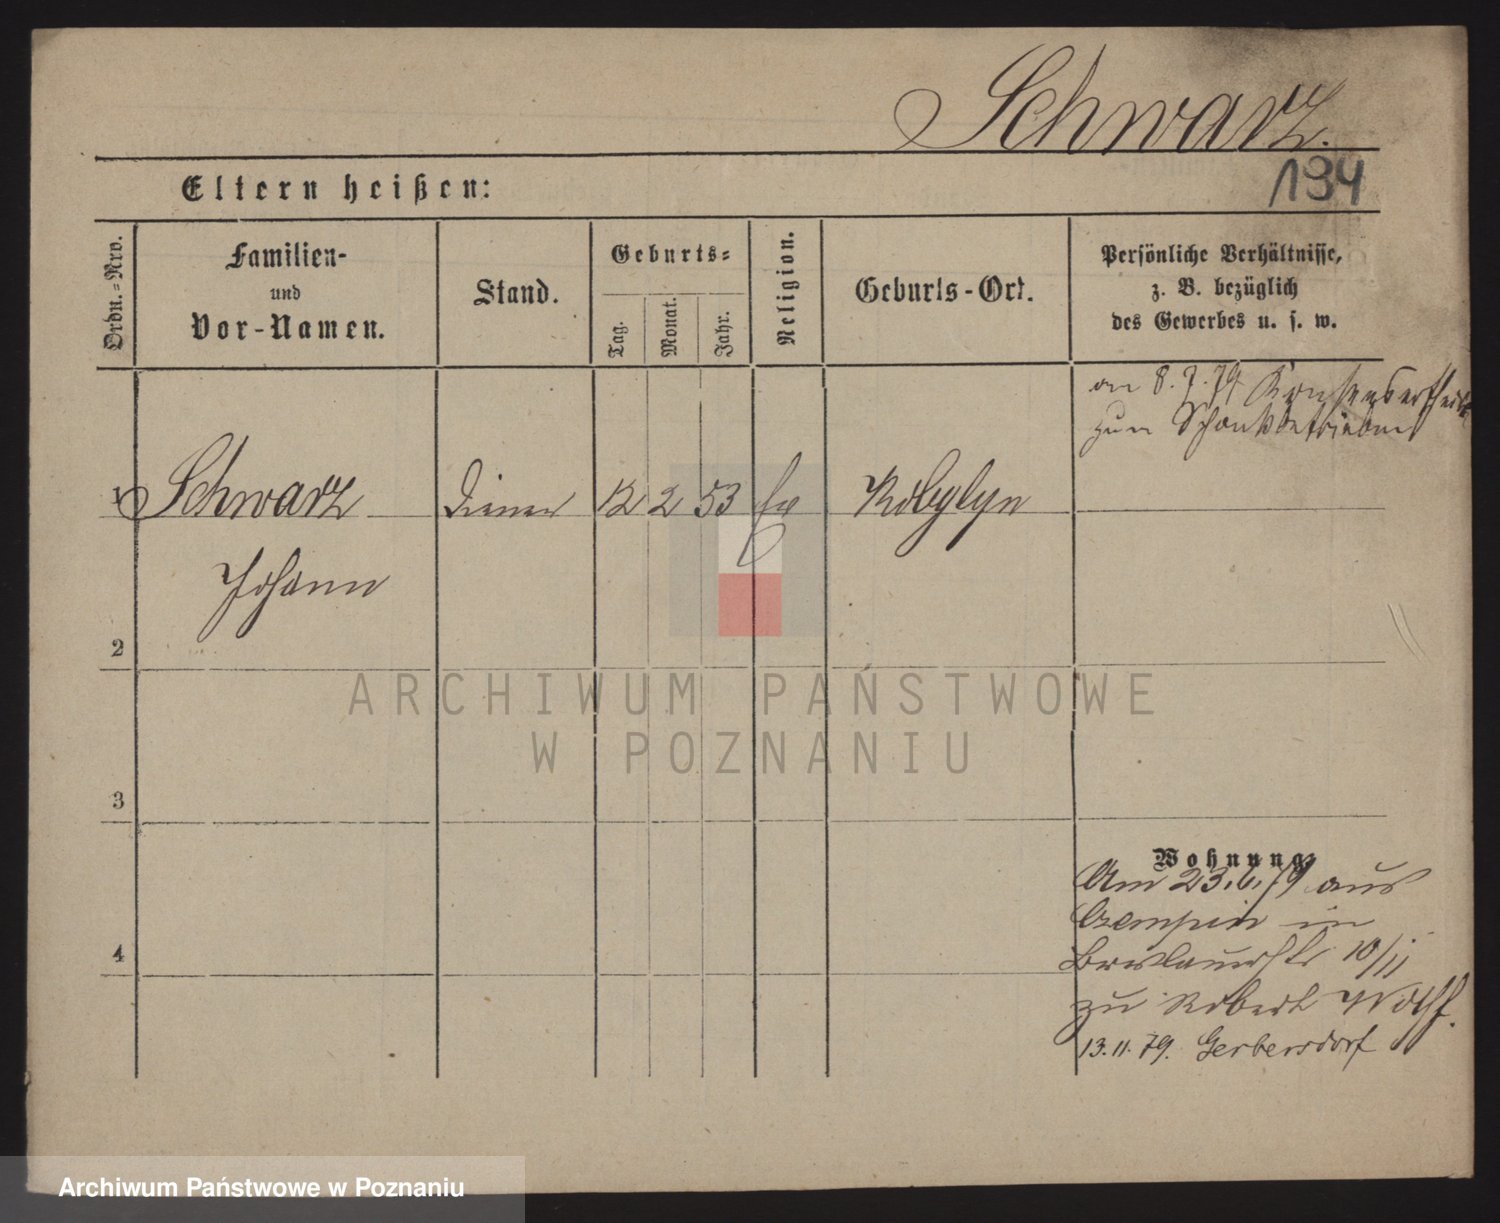 Schwarz.
194
Eltern heißen:
Ordn.-Nro.
Familien-
und
Vor-Namen.
Stand.
Geburts-
Tag.
Monat.
Jahr.
Religion.
Geburts-Ort.
Persönliche Verhältnisse,
z. B. bezüglich
des Gewerbes u. s. w.
am 8. 7. 79 Konsens ertheilt
zum Schankbetrieb
1 Schwarz Diener 12 2 53 Kobylyn
Johann
2
ARCHIWUM PAŃSTWOWE
W POZNANIU
3
Wohnung
Am 23.6.79 aus
Czempin in
Breslauerstr 10/11
4
zu Robert Wolff.
13.11.79. Gerbersdorf
Archiwum Państwowe w Poznaniu